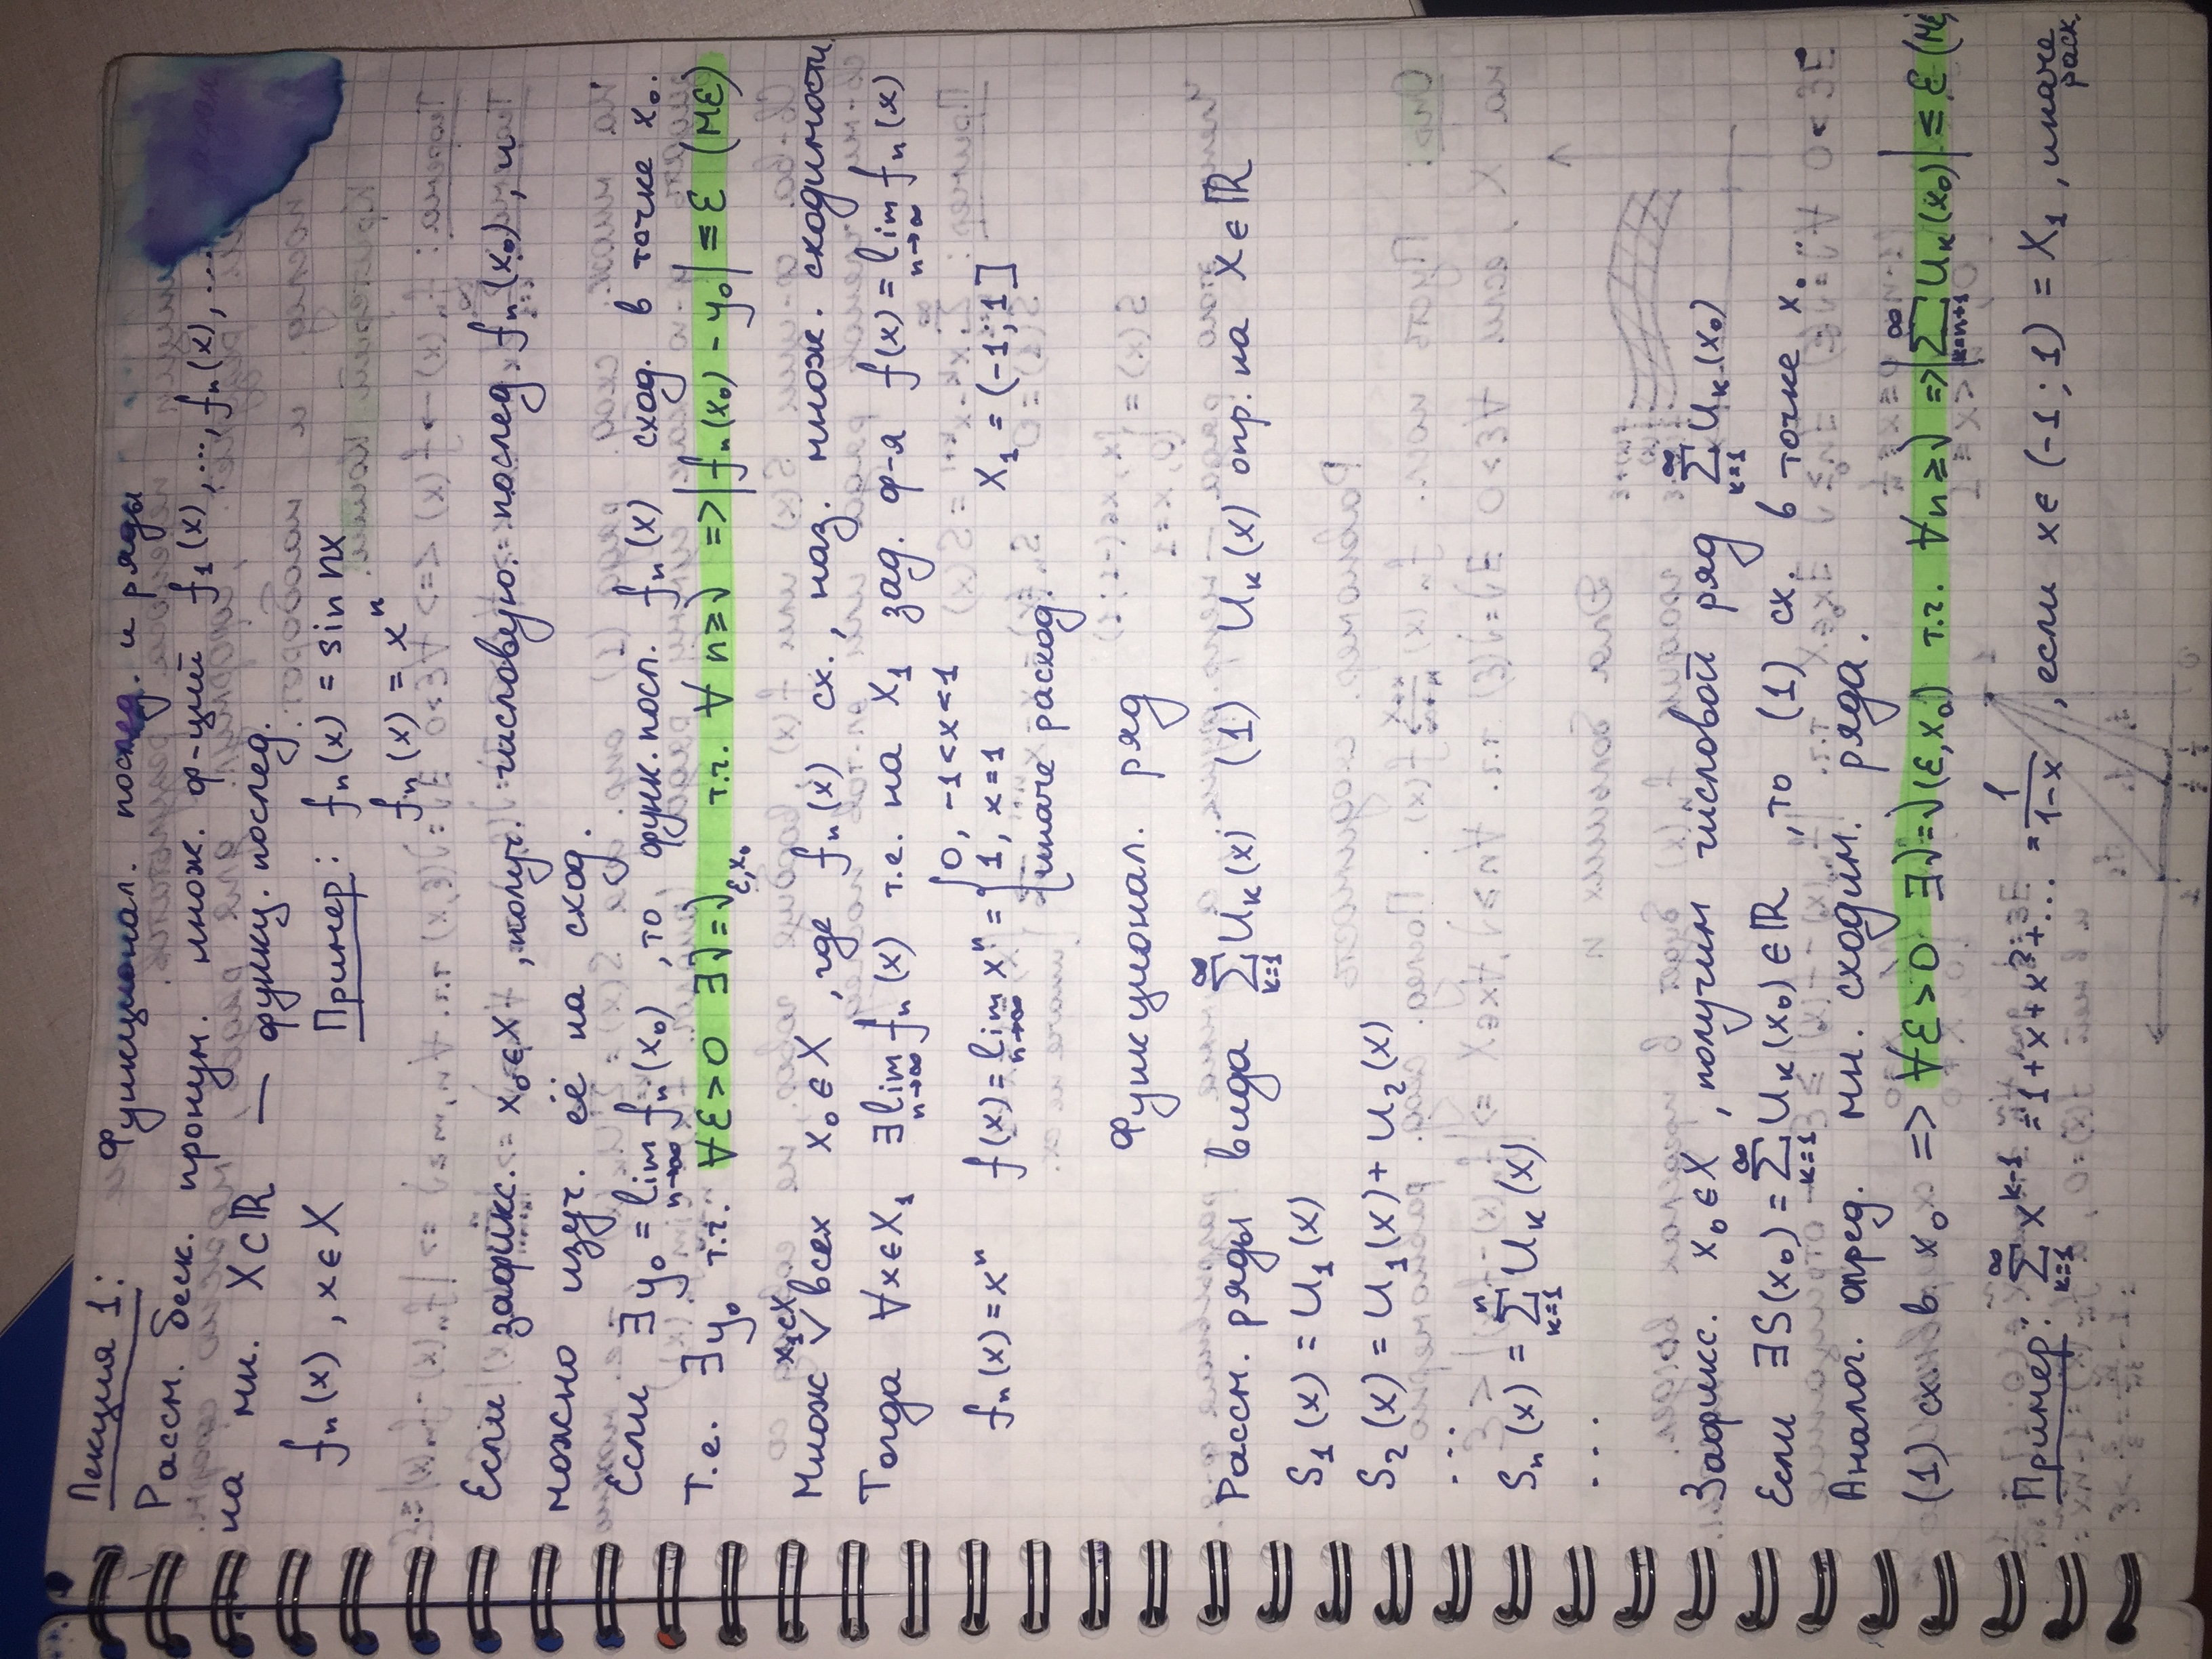 Лекция 1: Функционал. послед. и ряды
Рассм. беск. пронум. множ. ф-ций f₁(x),...,fₙ(x),...
на мн. X⊂ℝ — функц. послед.
fₙ(x), x∈X Пример: fₙ(x) = sin nx
fₙ(x) = xⁿ
Если зафикс. x₀∈X, получ. числовую. послед. fₙ(x₀), и
можно изуч. её на сход.
Если ∃y₀ = lim_{n→∞} fₙ(x₀), то функ. посл. fₙ(x) сход. в точке x₀.
Т.е. ∃y₀ т.ч. ∀ε>0 ∃√=√_{ε,x₀} т.ч. ∀ n≥√ => |fₙ(x₀) - y₀| ≤ ε (Mε)
X₁⊂X
Множ ∨ всех x₀∈X, где fₙ(x) сх., наз. множ. сходимости
Тогда ∀x∈X₁ ∃lim_{n→∞} fₙ(x) т.е. на X₁ зад. ф-я f(x) = lim_{n→∞} fₙ(x)
fₙ(x) = xⁿ f(x) = lim_{n→∞} xⁿ = { 0, -1<x<1
1, x=1 X₁ = (-1; 1]
иначе расход.
Функционал. ряд
Рассм. ряды вида ∑_{k=1}^{∞} U_k(x) (1) U_k(x) опр. на X∈ℝ
S₁(x) = U₁(x)
S₂(x) = U₁(x) + U₂(x)
...
Sₙ(x) = ∑_{k=1}^{n} U_k(x)
...
Зафикс. x₀∈X, получим числовой ряд ∑_{k=1}^{∞} U_k(x₀)
Если ∃S(x₀) = ∑_{k=1}^{∞} U_k(x₀) ∈ℝ, то (1) сх. в точке x₀.
Аналог. опред. мн. сходим. ряда.
(1) сх. в x₀ => ∀ε>0 ∃√=√(ε,x₀) т.ч. ∀n≥√ => |∑_{k=n+1}^{∞} U_k(x₀)| ≤ ε (Mε)
Пример: ∑_{k=1}^{∞} x^{k-1} = 1+x+x²+... = 1/(1-x), если x∈(-1; 1) = X₁, иначе
расх.